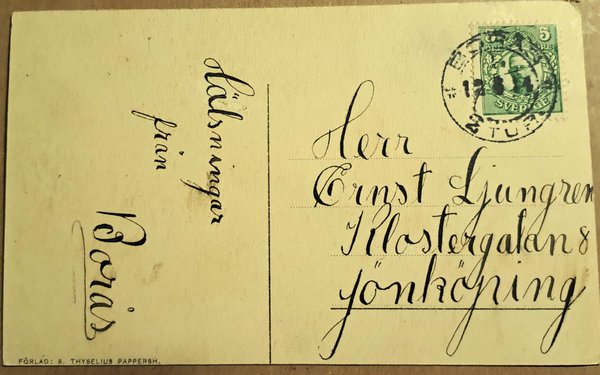 Hälsningar
från
Borås
FÖRLAG: S. THYSELIUS PAPPERSH.
5
SVERIGE
BORÅS
2 TUR
Herr
Ernst Ljungren
Klostergatan 8
Jönköping